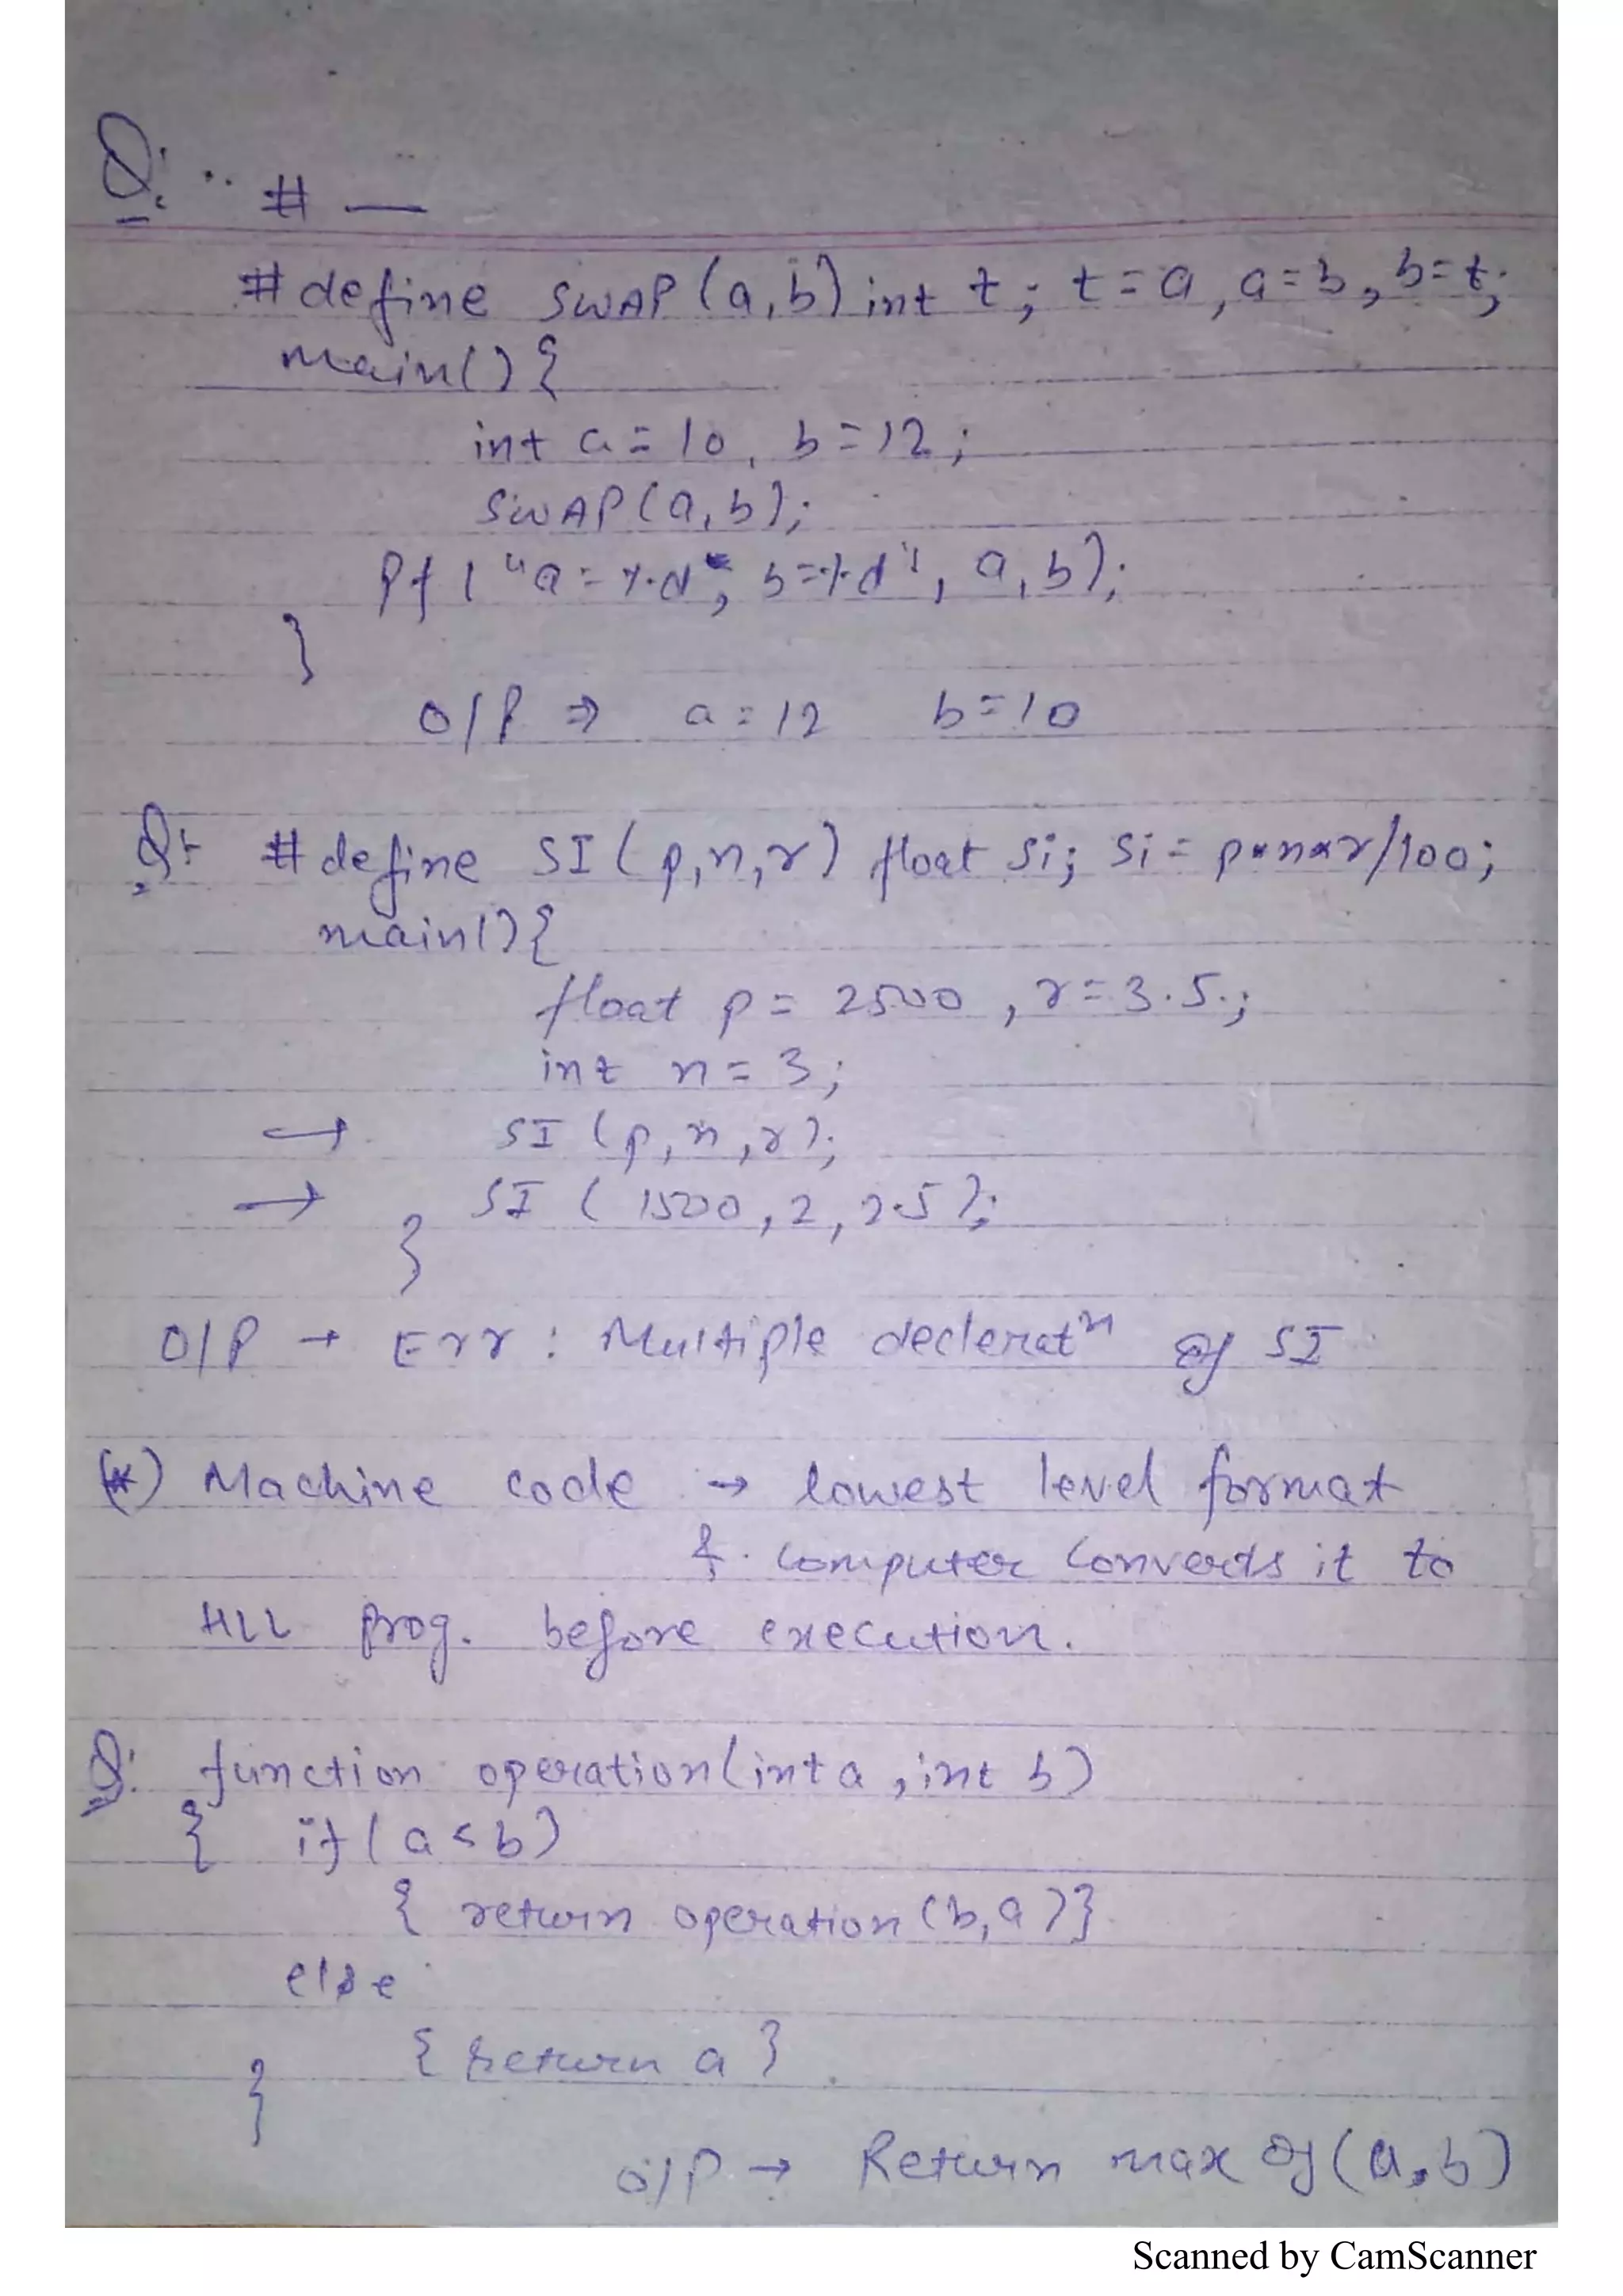 Q: .. # —
#define SWAP(a,b) int t; t=a, a=b, b=t;
main(){
int a=10, b=12;
SWAP(a,b);
Pf ("a=%d, b=%d", a,b);
}
O/P ⇒ a=12 b=10
Q: #define SI(p,n,r) float si; si=p*n*r/100;
main(){
float p=2500, r=3.5;
int n=3;
→ SI(p,n,r);
→ SI(1500,2,2.5);
}
O/P → Err: Multiple declerat^n of SI
(*) Machine code → lowest level format
& computer converts it to
HLL prog. before execution.
Q: function operation(int a, int b)
{ if(a<b)
{ return operation(b,a)}
else
{ return a }
}
O/P → Return max of (a,b)
Scanned by CamScanner